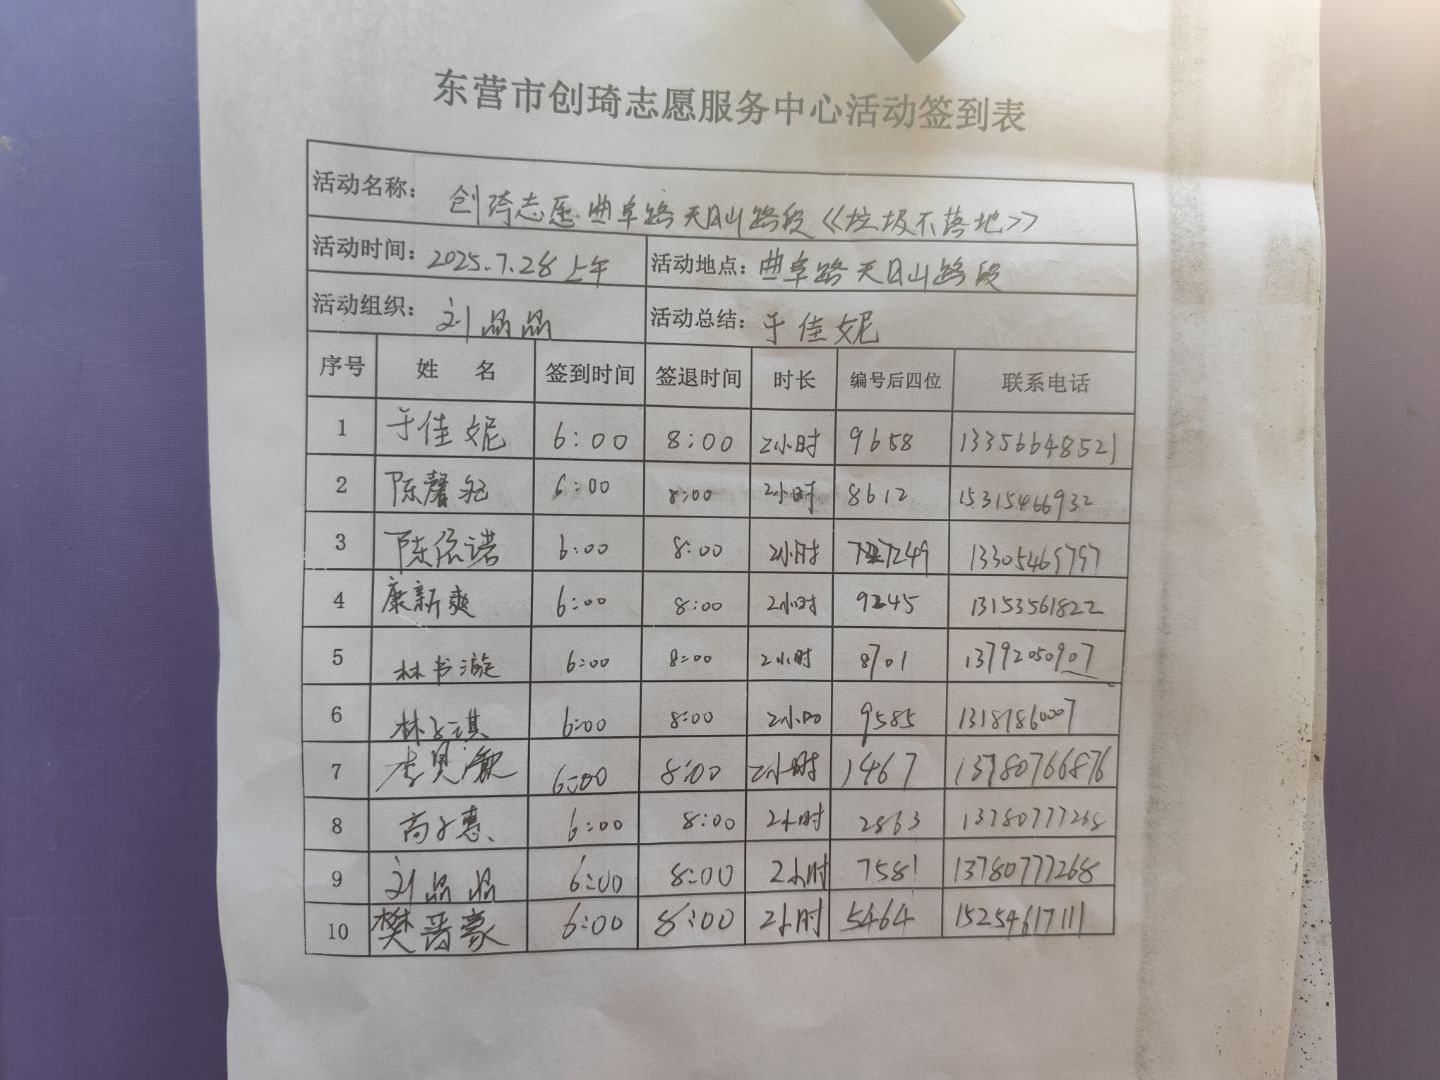 东营市创琦志愿服务中心活动签到表
活动名称： 创琦志愿曲阜路天目山路段《垃圾不落地》
活动时间： 2025.7.28上午 活动地点： 曲阜路天目山路段
活动组织： 刘晶晶 活动总结： 于佳妮
序号 姓 名 签到时间 签退时间 时长 编号后四位 联系电话
1 于佳妮 6:00 8:00 2小时 9658 13356648521
2 陈馨 6:00 8:00 2小时 8612 15315466932
3 陈依诺 6:00 8:00 2小时 7249 13305469797
4 康新爽 6:00 8:00 2小时 9245 13153561822
5 林书漩 6:00 8:00 2小时 8701 13792050907
6 林子淇 6:00 8:00 2小时 9585 13181860007
7 李贝 6:00 8:00 2小时 1467 13780766876
8 高子惠 6:00 8:00 2小时 2863 13780777268
9 刘晶晶 6:00 8:00 2小时 7581 13780777268
10 樊晋豪 6:00 8:00 2小时 5464 15254617111